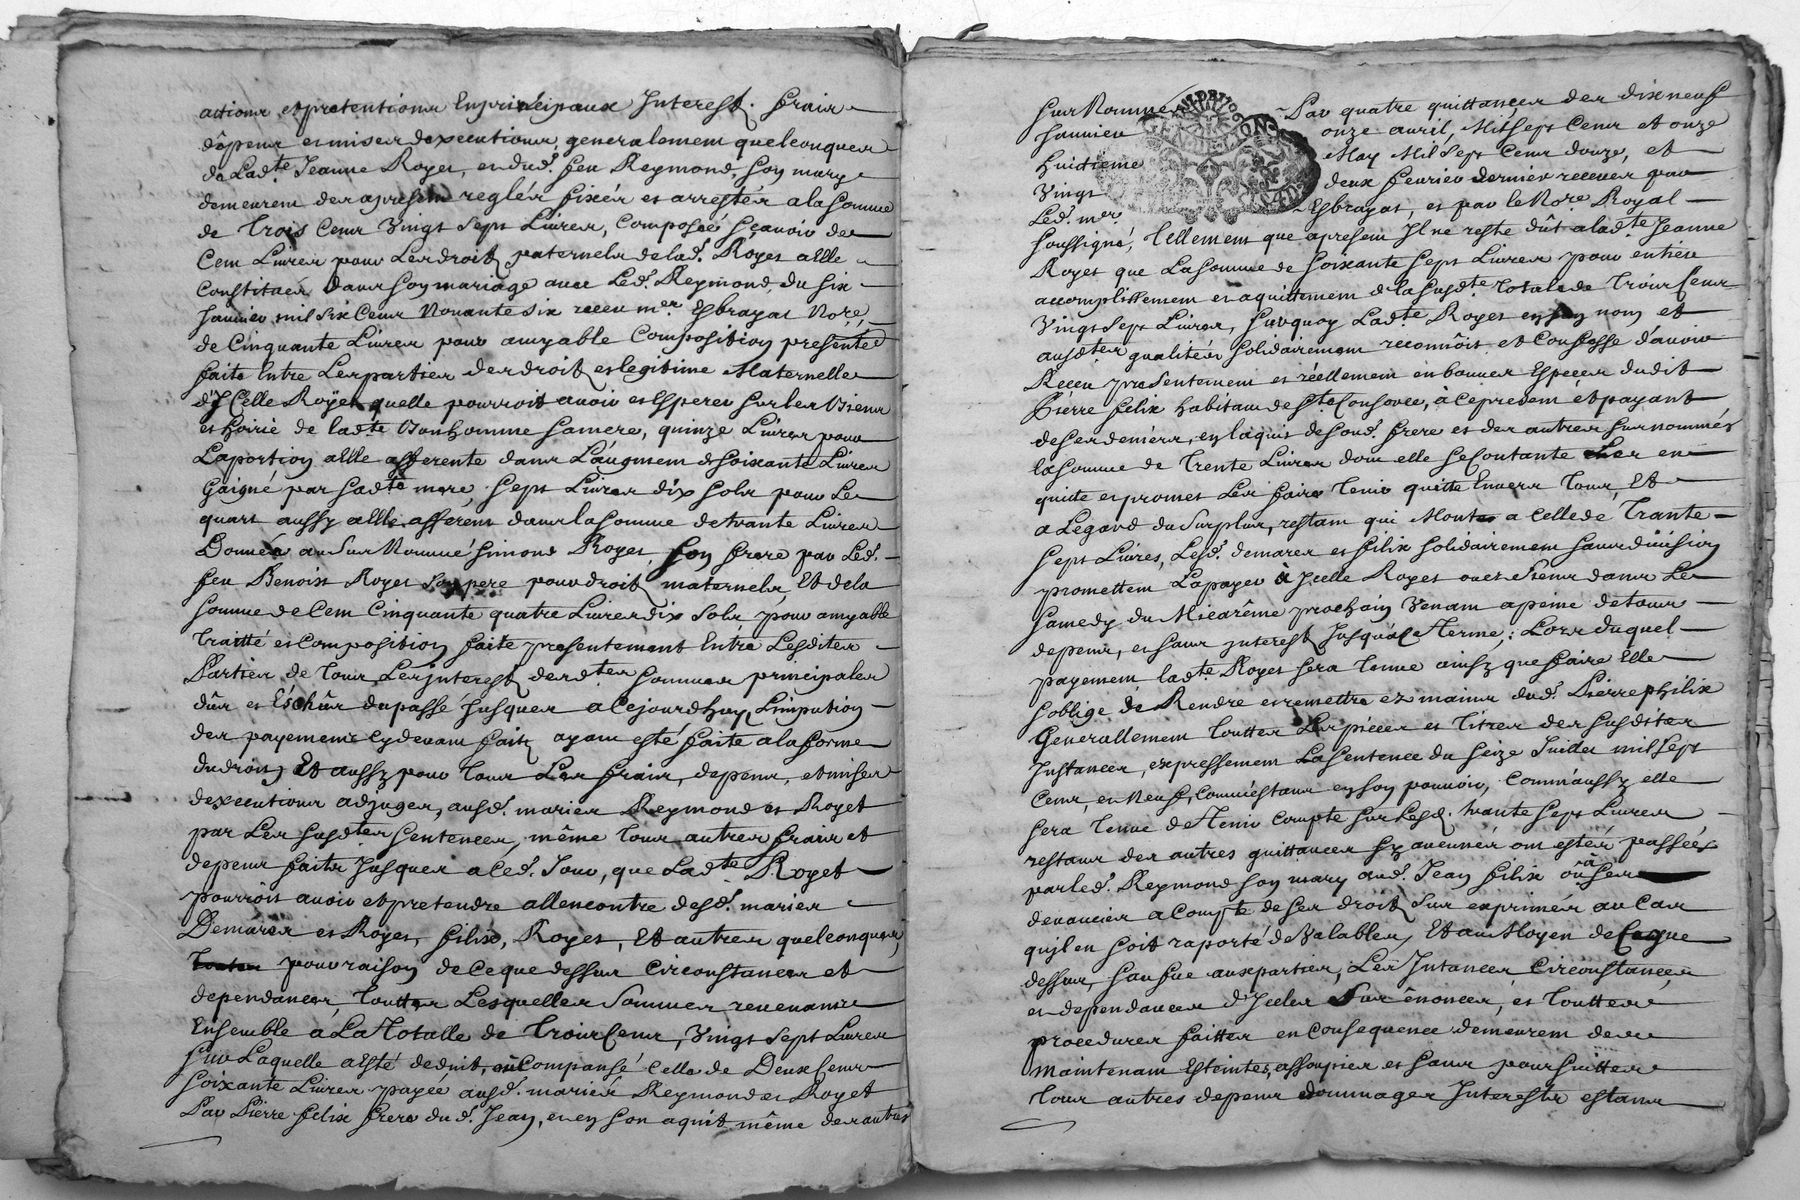 actions et pretentions En principaux Interest. frais
dépens et mises dexecutions generalement quelconques
de Lad.te Jeanne Royet, et dud. feu Reymond, son mary
demeurent des apresent reglés fixés et arrestés a la somme
de Trois Cens Vingt sept Livres, Composée sçavoir de
Cent Livres pour Les droits paternels de lad. Royet a Elle
Constitués dans son mariage avec Led. Reymond, du six
Janvier mil six Cens Nonante six receu m.re Esbrayat No.re,
de Cinquante Livres pour amyable Composition presente
faite Entre Les parties des droits et legitime Maternelle
d'ycelle Royet quelle pourroit avoir et Esperer sur les Biens
et hoirie de lad.te Bonhomme sa mere, quinze Livres pour
La portion a Elle afferente dans L'augment de soixante Livres
Gaigné par sad.te mere, sept Livres dix sols pour Le
quart aussy a Elle afferent dans la somme de trante Livres
Donnés au sur Nommé Simond Royet son frere par Led.
feu Benoist Royet son pere pour droits maternels, Et de la
somme de Cent Cinquante quatre Livres dix sols pour amyable
Traitté et composition faite presentement Entre Lesdites
Parties de tous Les Interests desd.tes sommes principales
dûs et Eschûs du passé Jusques a Cejourdhuy, L'inpution
des payements Cydevant faits ayant esté faite a la forme
du droit, Et aussy pour tous Les frais, depens, et mises
dexecutions adjuges, ausd. mariés Reymond et Royet
par Les susd.tes sentences, même tous autres frais et
depens faits Jusques a Ced. Jour, que Lad.te Royet
pourroit avoir et pretendre allencontre desd. mariés
Demares et Royet, felix, Royet, Et autres quelconques,
pour raison de Ceque dessus Circonstances et
dependances, Touttes Lesquelles Sommes revenants
Ensemble à La Totalle de Trois Cens, Vingt sept Livres
sur Laquelle a Esté deduit, et Compansé Celle de Deux Cens
soixante Livres payée ausd. mariés Reymond et Royet
Par Pierre felix frere dud. Jean, et en son aquit même des autres
sur Nommés Par quatre quittances des dix neuf
Janvier onze avril, Mil sept Cens et onze
huitieme May Mil sept Cens douze, et
Vingt deux fevrier dernier receues par
Led. m.re Esbrayat, et par le No.re Royal
soussigné, Tellement que apresent Il ne reste dût a lad.te Jeanne
Royet que La somme de soixante sept Livres pour entier
accomplissement et aquittement de la susd.te Totale de Trois Cens
Vingt sept Livres, surquoy Lad.te Royet en son nom et
ausd.tes qualités solidairement reconnoit et Confesse d'avoir
Receu presentement et réellement en bonnes Especes dudit
Pierre felix habitant de S.te Consorce, à ce present et payant
de ses deniers, en laquit de sond. frere et des autres sur nommés
la somme de Trente Livres dont elle se Contante Les en
quitte et promet Les faire Tenir quitte Envers Tous, Et
a Legard du Surplus, restant qui Monte a Celle de Trante
sept Livres, Lesd. demares et felix solidairement sans division
promettent La payer à ycelle Royet ou es siens dans Le
samedy du Micarême prochain Venant a peine de tous
depens, et sans interest Jusquâ Ce Terme; Lors duquel
payement lad.te Royet sera Tenue ainsy que faire Elle
soblige de Rendre et remettre ez mains dud. Pierre philix
Generallement Touttes Les pieces et Titres des susdites
Instances, expressement La Sentence du seize Juillet mil sept
Cens, et Neuf, Comm'estant en son pouvoir, Comm'aussy elle
sera Tenue de Tenir Compte sur Lesd. trante sept Livres
restans des autres quittances sy aucunes ont estés passées
par led. Reymond son mary aud. Jean felix ou â ses
devanciers a Compte de ses droits sur exprimés au Cas
quil en soit raporté de Valables, Et au Moyen de Ceque
dessus, sauf ce aux parties, Les Intances Circonstances,
et dependances d'Icelles Sur ênoncées, et Touttes
procedures faittes en Consequence demeurent des
maintenant Esteintes, assoupies et sans poursuittes
Tous autres depens dommages Interests estans